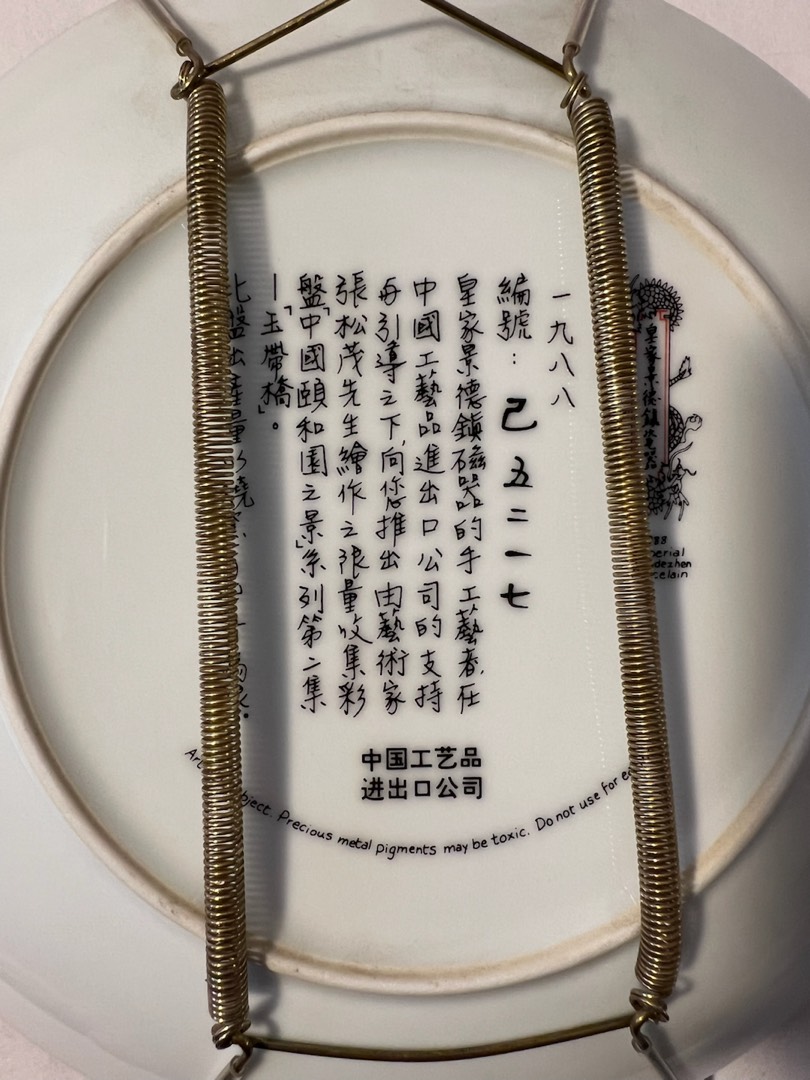 皇家景德鎮瓷器
一九八八
編號：己五二一七
皇家景德鎮磁器的手工藝者,在
中國工藝品進出口公司的支持
與引導之下,向您推出由藝術家
張松茂先生繪作之限量收集彩
盤「中國頤和園之景」系列第二集
—「玉帶橋」。
此盤出產量以燒
中国工艺品
进出口公司
Precious metal pigments may be toxic. Do not use for